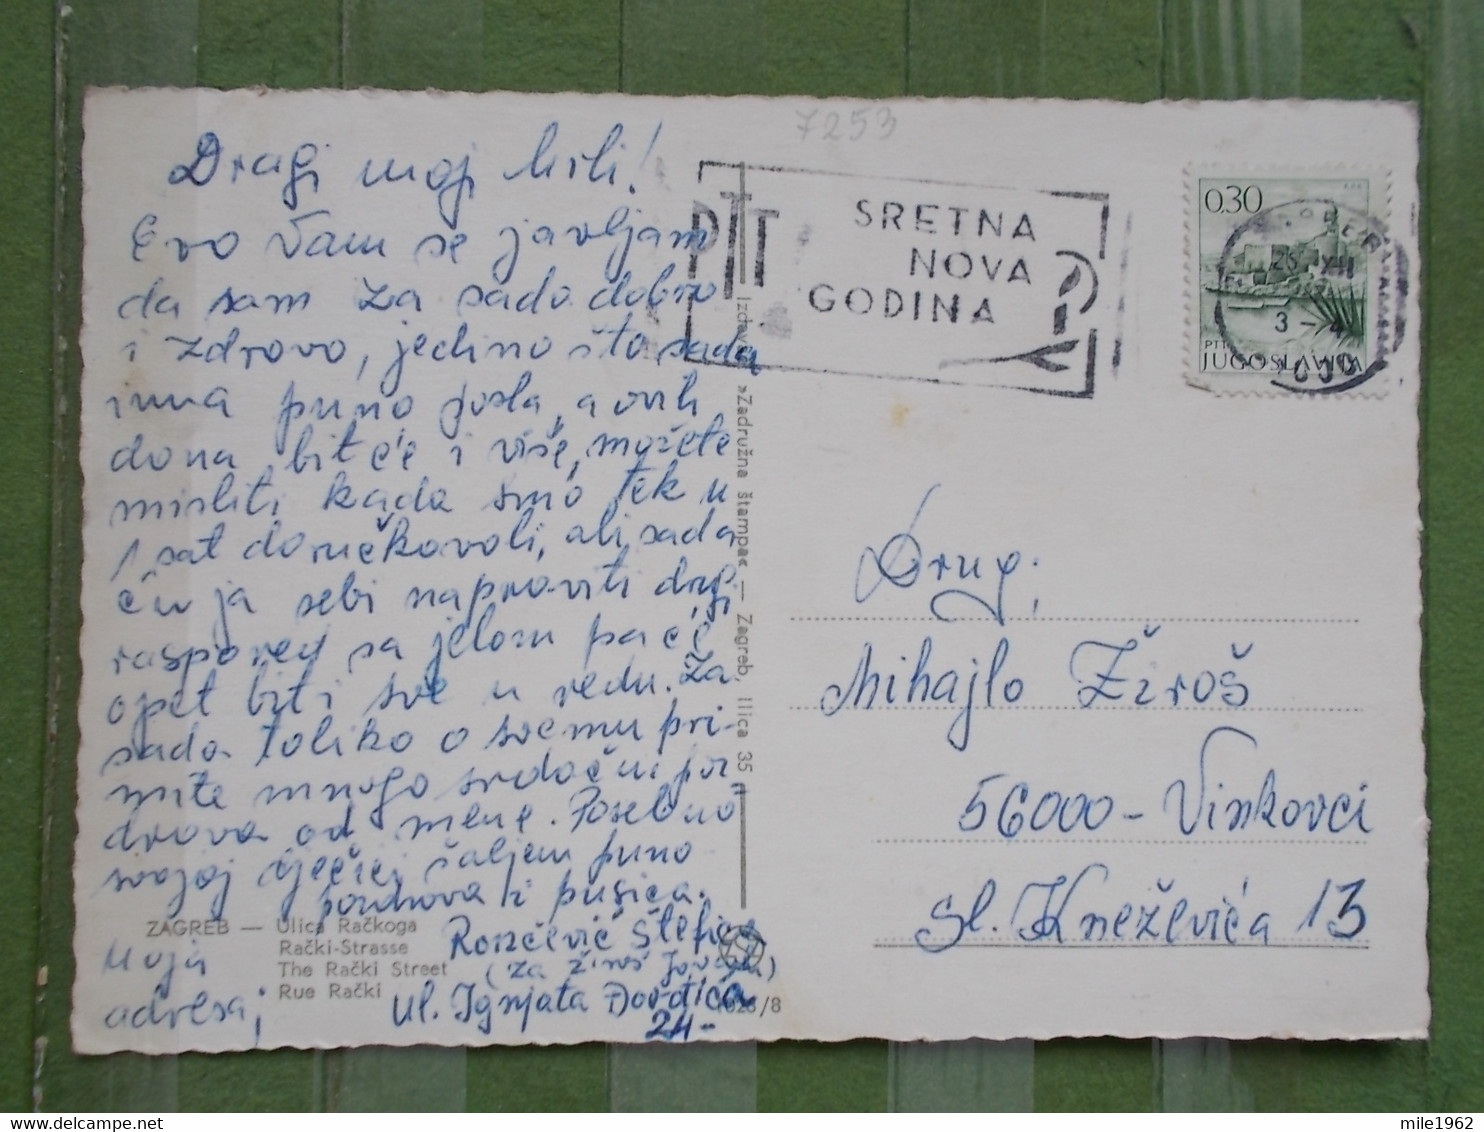 7253
Dragi moji mili!
Evo Vam se javljam
da sam za sada dobro
i zdravo, jedino što sada
ima puno posla, a ovih
dona bit će i više, možete
misliti kada smo tek u
1 sat doručkovali, ali sada
ću ja sebi napraviti drugi
raspored sa jelom pa će
opet biti sve u redu. Za
sada toliko o svemu pri-
mite mnogo srdačni poz
drava od mene. Posebno
svojoj dječici šaljem puno
pozdrava i pusica.
ZAGREB — Ulica Račkoga
Rački-Strasse
The Rački Street
Rue Rački
Moja
adresa;
Rončević Štefica
(za Žiroš Jovana)
Ul. Ignjata Đorđića
24-
1028/8
»Zadružna štampa« — Zagreb, Ilica 35
PTT
SRETNA
NOVA
GODINA
0,30
PTT
JUGOSLAVIJA
25 XII
3 -
Drug;
Mihajlo Žiroš
56000 - Vinkovci
Sl. Kneževića 13
mile1962